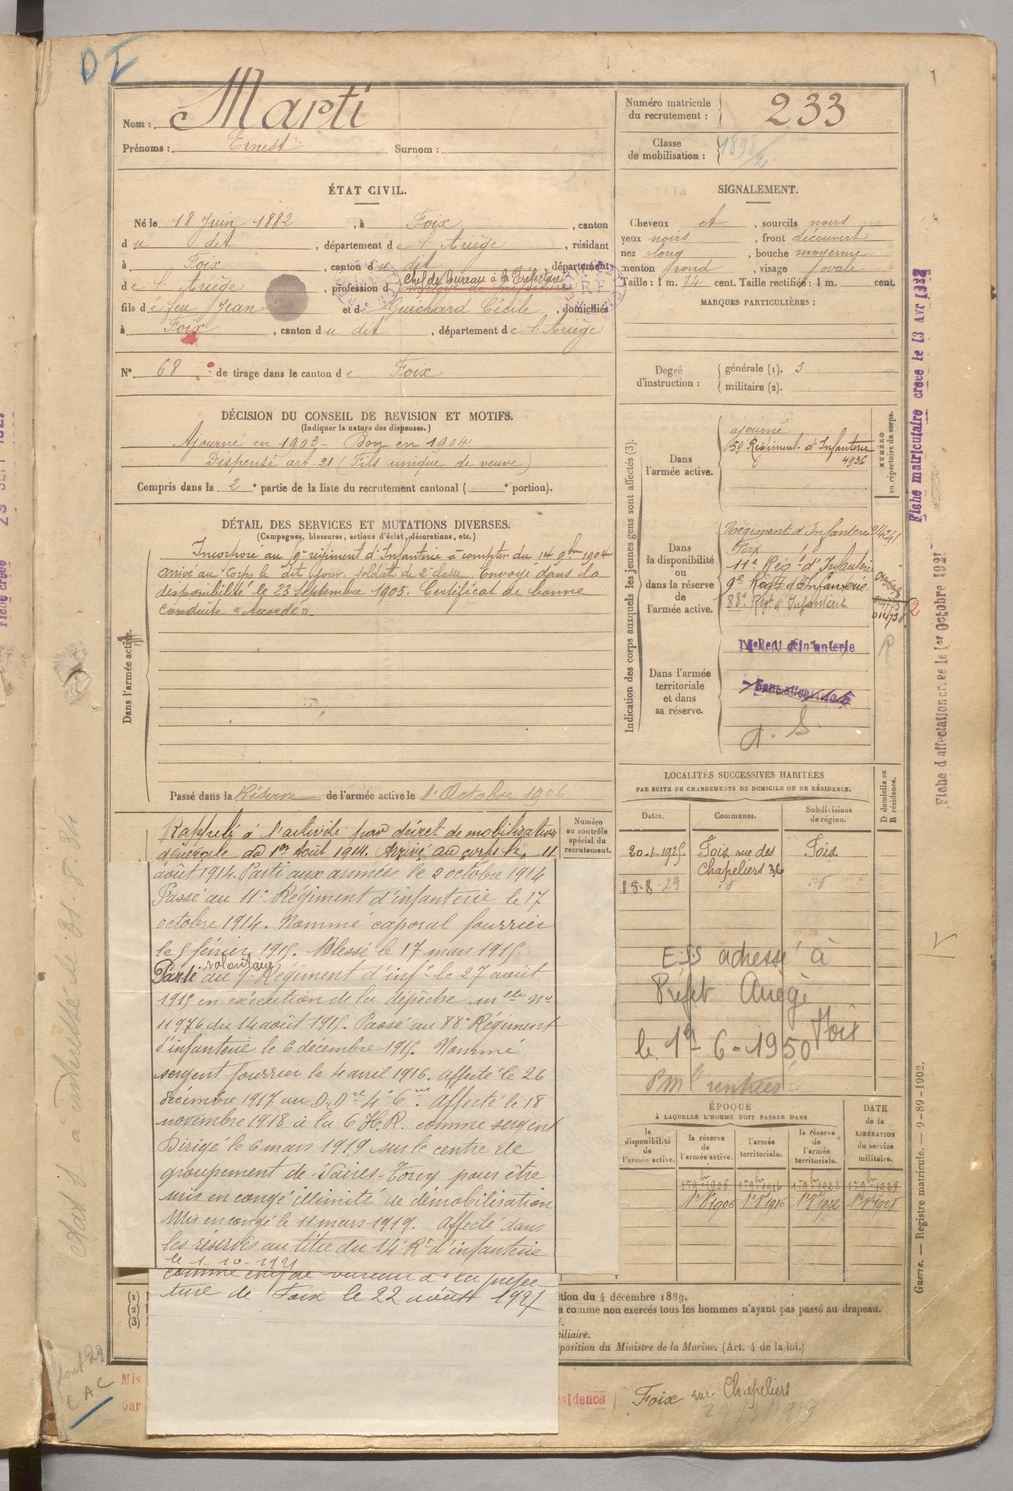 DI
1
Nom : Marti
Prénoms : Ernest Surnom :
Numéro matricule du recrutement : 233
Classe de mobilisation :
ÉTAT CIVIL.
Né le 18 Juin 1882, à Foix, canton
du dit, département de l'Ariège, résidant
à Foix, canton du dit, département
de l'Ariège, profession d Chef de bureau à la Préfecture
fils de feu Jean et de Guichard Cécile, domiciliés
à Foix, canton du dit, département de l'Ariège
N° 68 de tirage dans le canton de Foix
DÉCISION DU CONSEIL DE REVISION ET MOTIFS.
(Indiquer la nature des dispenses.)
Ajourné en 1903 - Bon en 1904
Dispensé art. 21 (Fils unique de veuve)
Compris dans la 2e partie de la liste du recrutement cantonal ( e portion).
DÉTAIL DES SERVICES ET MUTATIONS DIVERSES.
(Campagnes, blessures, actions d'éclat, décorations, etc.)
Incorporé au 9e régiment d'Infanterie à compter du 14 9bre 1904
arrivé au Corps le dit jour. soldat de 2e classe. Envoyé dans la
disponibilité le 23 Septembre 1905. Certificat de bonne
conduite "Accordé".
Dans l'armée active.
Passé dans la Réserve de l'armée active le 1er Octobre 1906
Rappelé à l'activité par décret de mobilisation
générale du 1er Août 1914. Arrivé au corps le 11
août 1914. Parti aux armées le 2 octobre 1914
Passé au 11e Régiment d'infanterie le 17
octobre 1914. Nommé caporal fourrier
le 5 février 1915. Blessé le 17 mars 1915.
volontaire
Parti au 9e Régiment d'infie le 27 août
1915 en exécution de la dépêche mlle no
11976 du 14 août 1915. Passé au 88e Régiment
d'infanterie le 6 décembre 1915. Nommé
sergent fourrier le 4 avril 1916. Affecté le 26
décembre 1917 au D.D. 4e Cie. Affecté le 18
novembre 1918 à la C.H.R. comme sergent
Dirigé le 6 mars 1919 sur le centre de
groupement de Vaires-Torcy pour être
mis en congé illimité de démobilisation
Mis en congé le 11 mars 1919. Affecté dans
les réserves au titre du 14e Rt d'infanterie
le 1-10-1921
comme chef de bureau à la préfec-
ture de Foix le 22 août 1927
Numéro au contrôle spécial du recrutement.
SIGNALEMENT.
Cheveux et, sourcils noirs
yeux noirs, front découvert
nez long, bouche moyenne
menton rond, visage ovale
Taille : 1 m. 74 cent. Taille rectifiée : 1 m. cent.
MARQUES PARTICULIÈRES :
Degré d'instruction : générale (1). 3
militaire (2).
Indication des corps auxquels les jeunes gens sont affectés (3).
NUMÉRO au répertoire du corps.
Dans l'armée active.
ajourné
Régiment d'Infanterie
4936
Dans la disponibilité ou dans la réserve de l'armée active.
Régiment d'Infanterie
Foix
11e Régt d'Infanterie
9e Régt d'Infanterie
88e Régt d'Infanterie
2
Dans l'armée territoriale et dans sa réserve.
14e Regt d'infanterie
Sans affectation
A. S.
R
LOCALITÉS SUCCESSIVES HABITÉES
PAR SUITE DE CHANGEMENTS DE DOMICILE OU DE RÉSIDENCE.
D domicile ou R résidence.
Dates. Communes. Subdivisions de région.
Foix rue des Foix
Chapeliers 36
15-8-29 d° d°
ESS adressé à
Préfet Ariège
Foix
le 19-6-1950
ÉPOQUE
À LAQUELLE L'HOMME DOIT PASSER DANS
DATE de la LIBÉRATION du service militaire.
la disponibilité de l'armée active. la réserve de l'armée active. l'armée territoriale. la réserve de l'armée territoriale.
(1)
(2)
(3)
tion du 4 décembre 1889.
a comme non exercés tous les hommes n'ayant pas passé au drapeau.
ciliaire.
position du Ministre de la Marine. (Art. 4 de la loi.)
Mis
par
sidence
Foix rue Chapeliers
CAC
Fiche matriculaire créée le 13 Avr 1922
Fiche d'affectation créée le 1er Octobre 1921
Guerre. — Registre matricule. — 9-89-1902.